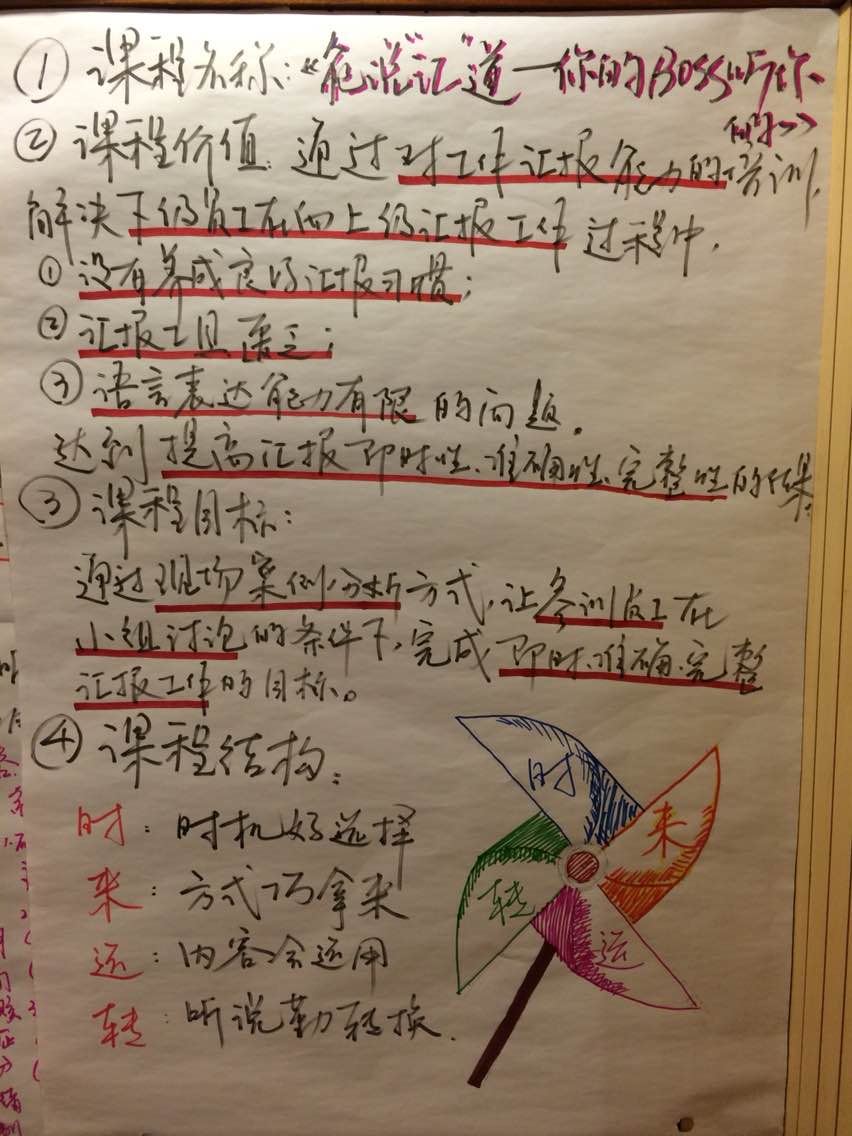 ① 课程名称:《"能说"汇"道—你的Boss听你
的》
② 课程价值:通过对工作汇报能力的培训,
解决下级员工在向上级汇报工作过程中,
① 没有养成良好汇报习惯;
② 汇报工具匮乏;
③ 语言表达能力有限的问题。
达到提高汇报即时性、准确性、完整性的结果。
③ 课程目标:
通过现场案例分析方式,让参训员工在
小组讨论的条件下,完成即时、准确、完整
汇报工作的目标。
④ 课程结构:
时:时机好选择
来:方式巧拿来
运:内容会运用
转:听说勤转换.
时
来
转
运